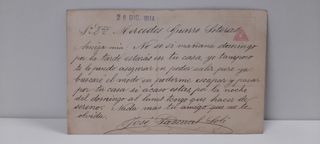 28 DIC. 1914
Srta Mercedes
Amiga mia: No se si mañana domingo
por la tarde estarás en tu casa, yo tampoco
te lo puedo asegurar si podre salir, pero ya
buscaré el modo en poderme escapar y pasar
por tu casa si acaso estas por la noche
del domingo al lunes tengo que hacer de
sereno. Nada mas tu amigo que no te
olvida.
José